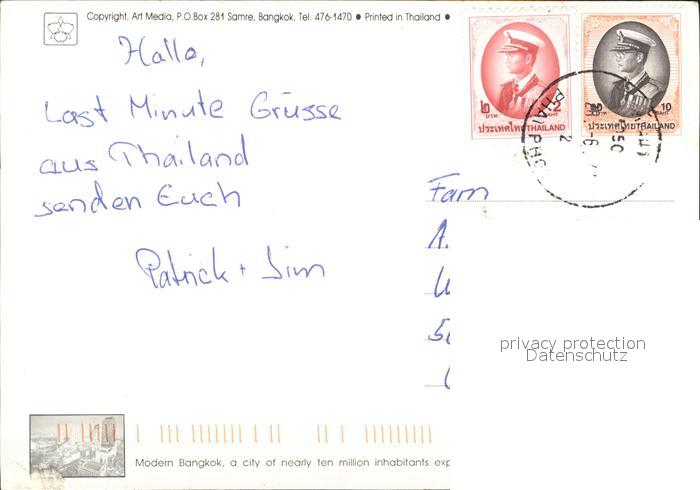 Copyright, Art Media, P.O.Box 281 Samre, Bangkok, Tel. 476-1470 ● Printed in Thailand ●
Hallo,
Last Minute Grüsse
aus Thailand
senden Euch
Patrick + Jim
๒ บาท 2 BAHT
ประเทศไทย THAILAND
๑๐ บาท 10 BAHT
ประเทศไทย THAILAND
Fam
A.
privacy protection
Datenschutz
Modern Bangkok, a city of nearly ten million inhabitants exp